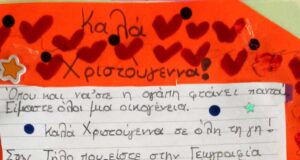 Καλά
Χριστούγεννα!
Όπου και να'σε η αγάπη φτάνει παντού
Είμαστε όλοι μια οικογένεια.
Καλά Χριστούγεννα σε όλη τη γη!
Σαν που είστε στην Γεωγραφία